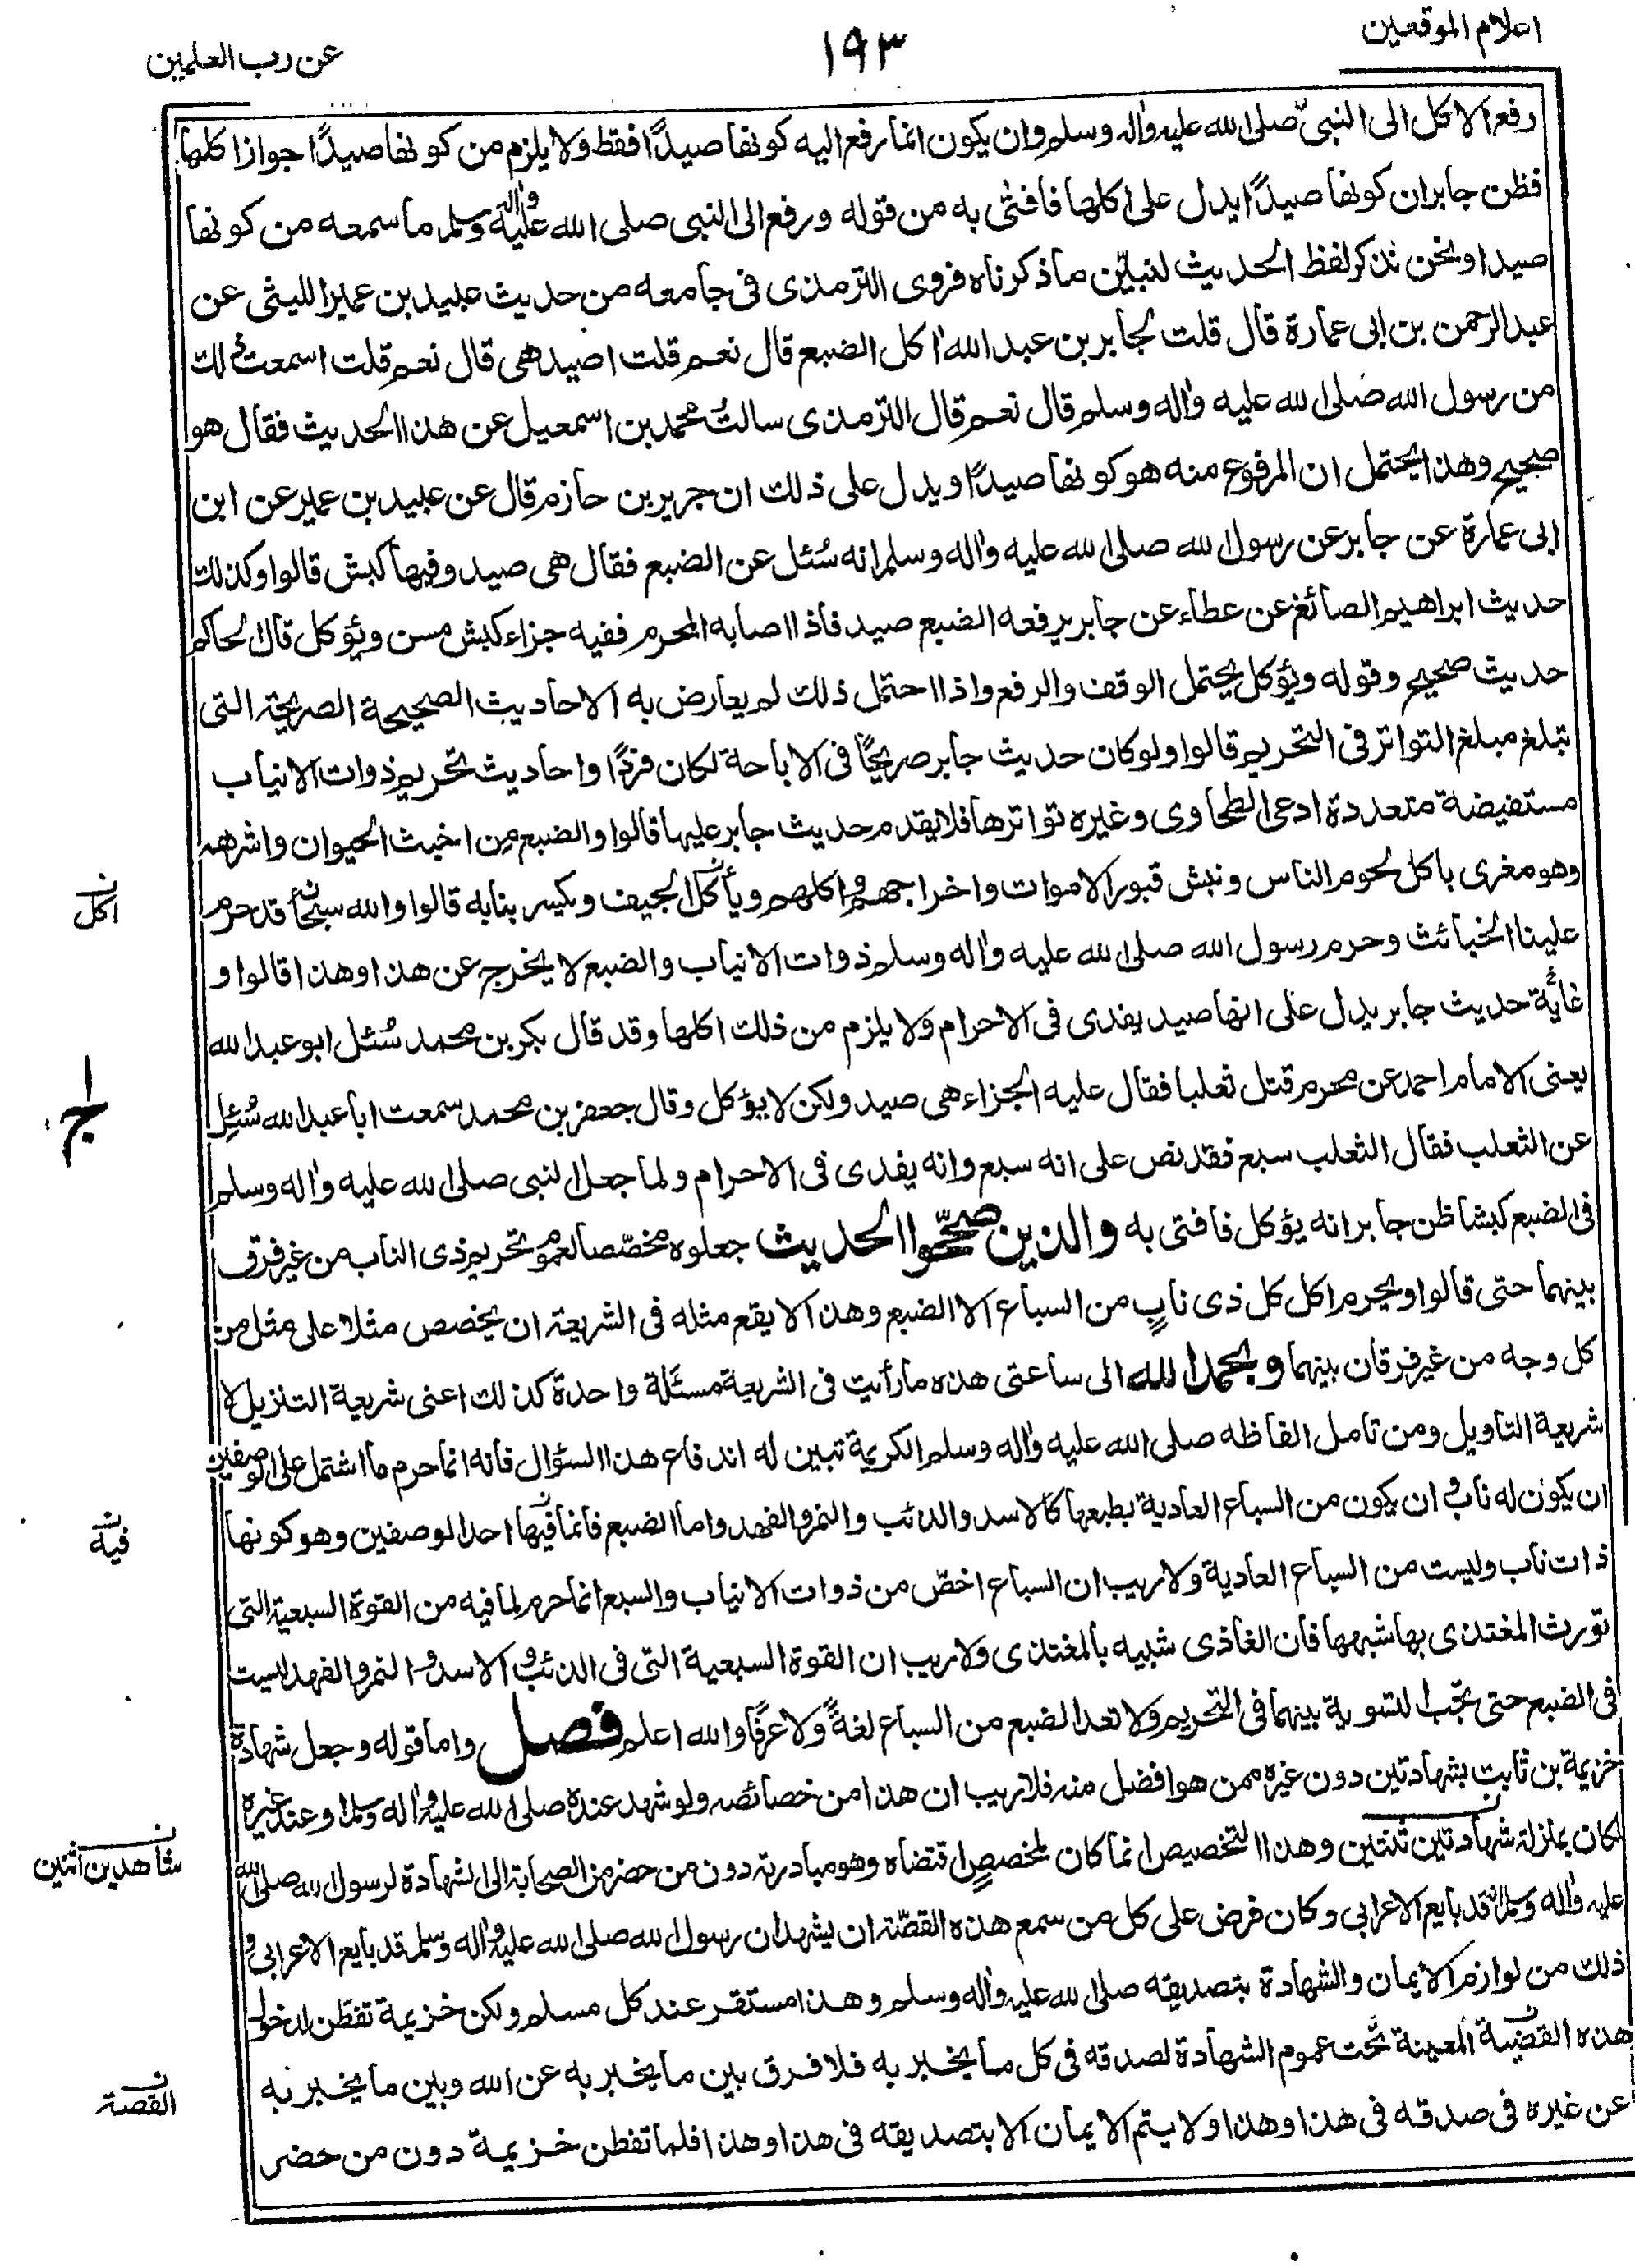 اعلام الموقعين
١٩٣
عن رب العلمين
رفع الاكل الى النبى صلى الله عليه واٰله وسلم وان يكون انما رفع اليه كونها صيدًا فقط ولا يلزم من كونها صيدًا جواز اكلها
فظن جابر ان كونها صيدًا يدل على اكلها فافتى به من قوله ورفع الى النبى صلى الله عليه واٰله وسلم ما سمعه من كونها
صيدا ونحن نذكر لفظ الحديث لنبيّن ما ذكرناه فروى الترمذى فى جامعه من حديث عبيد بن عمير الليثى عن
عبد الرحمن بن ابى عمارة قال قلت لجابر بن عبد الله اٰكل الضبع قال نعم قلت اصيد هى قال نعم قلت اسمعت ذلك
من رسول الله صلى الله عليه واٰله وسلم قال نعم قال الترمذى سالتُ محمد بن اسمعيل عن هذا الحديث فقال هو
صحيح وهذا يحتمل ان المرفوع منه هو كونها صيدًا ويدل على ذلك ان جرير بن حازم قال عن عبيد بن عمير عن ابن
ابى عمارة عن جابر عن رسول الله صلى الله عليه واٰله وسلم انه سُئل عن الضبع فقال هى صيد وفيها كبش قالوا وكذلك
حديث ابراهيم الصائغ عن عطاء عن جابر يرفعه الضبع صيد فاذا اصابه المحرم ففيه جزاء كبش مسن ويؤكل قال الحاكم
حديث صحيح وقوله ويؤكل يحتمل الوقف والرفع واذا احتمل ذلك لم يعارض به الاحاديث الصحيحة الصريحة التى
تبلغ مبلغ التواتر فى التحريم قالوا ولو كان حديث جابر صريحًا فى الاباحة لكان فردًا واحاديث تحريم ذوات الانياب
مستفيضة متعددة ادعى الطحاوى وغيره تواترها فلا يقدم حديث جابر عليها قالوا والضبع من اخبث الحيوان واشرهه
وهو مغرى باكل لحوم الناس ونبش قبور الاموات واخراجهم واكلهم ويأكل الجيف ويكسر بنابه قالوا والله سبحانه قد حرم
علينا الخبائث وحرم رسول الله صلى الله عليه واٰله وسلم ذوات الانياب والضبع لا يخرج عن هذا وهذا قالوا و
غاية حديث جابر يدل على انها صيد يفدى فى الاحرام ولا يلزم من ذلك اكلها وقد قال بكر بن محمد سُئل ابو عبد الله
يعنى الامام احمد عن محرم قتل ثعلبا فقال عليه الجزاء هى صيد ولكن لا يؤكل وقال جعفر بن محمد سمعت ابا عبد الله سُئِل
عن الثعلب فقال الثعلب سبع فقد نص على انه سبع وانه يفدى فى الاحرام ولما جعل النبى صلى الله عليه واٰله وسلم
فى الضبع كبشا ظن جابر انه يؤكل فافتى به والذين صحّحوا الحديث جعلوه مخصّصا لعموم تحريم ذى الناب من غير فرق
بينهما حتى قالوا ويحرم اكل كل ذى نابٍ من السباع الا الضبع وهذا لا يقع مثله فى الشريعة ان يخصص مثلا على مثل من
كل وجه من غير فرقان بينهما وبحمد الله الى ساعتى هذه ما رأيت فى الشريعة مسئلة واحدة كذلك اعنى شريعة التنزيل لا
شريعة التاويل ومن تامل الفاظه صلى الله عليه واٰله وسلم الكريمة تبين له اندفاع هذا السؤال فانه انما حرم ما اشتمل على الوصفين
ان يكون له ناب وان يكون من السباع العادية بطبعها كالاسد والذئب والنمر والفهد واما الضبع فانما فيها احد الوصفين وهو كونها
ذات ناب وليست من السباع العادية ولا ريب ان السباع اخصّ من ذوات الانياب والسبع انما حرم لما فيه من القوة السبعية التى
تورث المغتذى بها شبهها فان الغاذى شبيه بالمغتذى ولا ريب ان القوة السبعية التى فى الذئب والاسد والنمر والفهد ليست
فى الضبع حتى تجب التسوية بينهما فى التحريم ولا تعد الضبع من السباع لغةً ولا عرفًا والله اعلم فصل واما قوله وجعل شهادة
خزيمة بن ثابت بشهادتين دون غيره ممن هو افضل منه فلا ريب ان هذا من خصائصه ولو شهد عنده صلى الله عليه واٰله وسلم او عند غيره
لكان بمنزلة شهادتين ثنتين وهذا التخصيص انما كان لمخصصٍ اقتضاه وهو مبادرته دون من حضر من الصحابة الى الشهادة لرسول الله صلى الله
عليه واٰله وسلم انه قد بايع الاعرابى وكان فرض على كل من سمع هذه القصّة ان يشهد ان رسول الله صلى الله عليه واٰله وسلم قد بايع الاعرابى و
ذلك من لوازم الايمان والشهادة بتصديقه صلى الله عليه واٰله وسلم وهذا مستقر عند كل مسلم ولكن خزيمة تفطّن لدخول
هذه القضية المعينة تحت عموم الشهادة لصدقه فى كل ما يخبر به فلا فرق بين ما يخبر به عن الله وبين ما يخبر به
عن غيره فى صدقه فى هذا وهذا ولا يتم الايمان الا بتصديقه فى هذا وهذا فلما تفطن خزيمة دون من حضر
اكل
ج
فيه
شاهدين اثنين
القصة